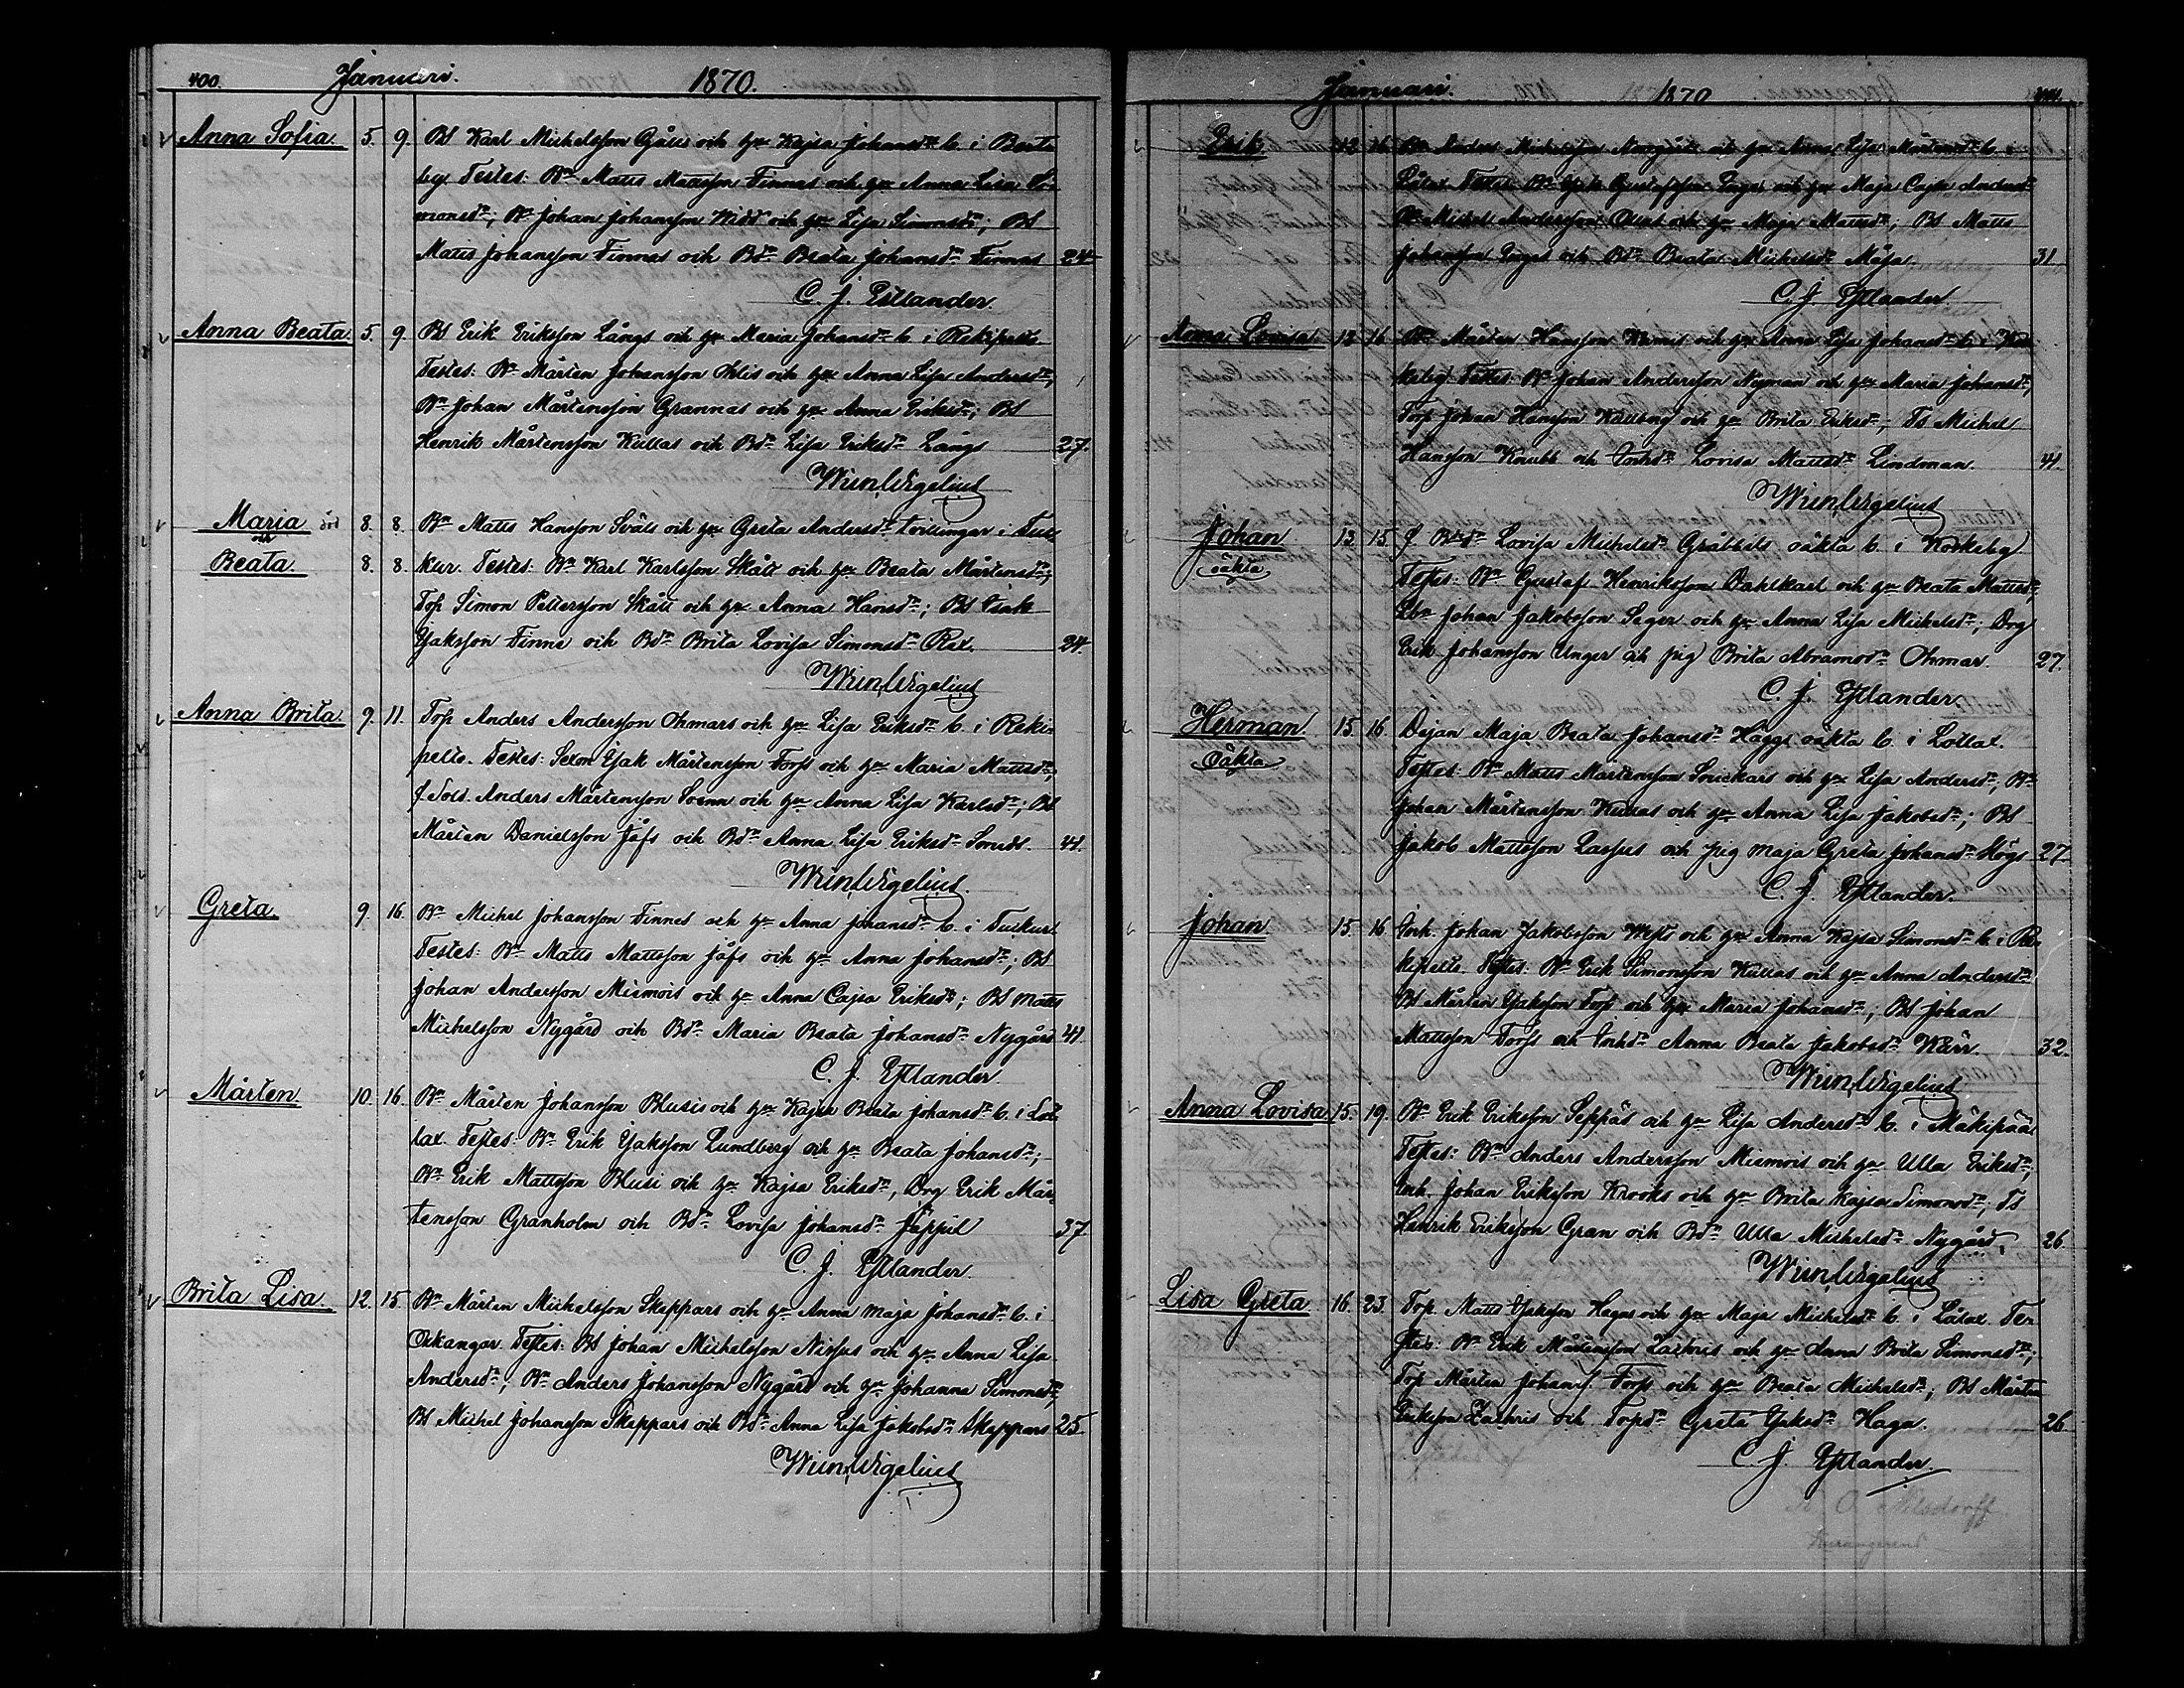 400. Januari. 1870.
Anna Sofia. 5. 9. BS Karl Michelsson Gålis och hu Kajsa Johansdr b. i Berte
by. Testes: Bn Matts Mattsson Finnas och hu Anna Lisa Si-
monsdr; Bn Johan Johansson Widd och hu Lisa Simonsdr; BS
Matts Johansson Finnas och Bdr Beata Johansdr Finnas 24
C. J. Estlander.
Anna Beata. 5. 9. BS Erik Eriksson Långs och hu Maria Johansdr b. i Rekipelto
Testes: Bn Mårten Johansson Ohlis och hu Anna Lisa Andersdr;
Bn Johan Mårtensson Grannas och hu Anna Eriksdr; BS
Henrik Mårtensson Kullas och Bdr Lisa Eriksdr Långs 27.
Wiin Wigelius
Maria död 8. 8. Bn Matts Hansson Sväls och hu Greta Andersdr tvillingar i Tuc
och
Beata. 8. 8. kur. Testes: Bn Karl Karlsson Skått och hu Beata Mårtensdr;
Torp Simon Pettersson Skått och hu Anna Hansdr; BS Isak
Isaksson Finne och Bdr Brita Lovisa Simonsdr Rax. 24.
Wiin Wigelius
Anna Brita. 9. 11. Torp Anders Andersson Ohmars och hu Lisa Eriksdr b. i Reki-
pelto. Testes: Sexm Isak Mårtensson Torp och hu Maria Mattsdr;
f. Sold. Anders Mårtensson Svenn och hu Anna Lisa Karlsdr; BS
Mårten Danielsson Jåfs och Bdr Anna Lisa Eriksdr Smeds. 41.
Wiin Wigelius.
Greta. 9. 16. Bn Michel Johansson Finnes och hu Anna Johansdr b. i Tuckur
Testes: Bn Matts Mattsson Jåfs och hu Anna Johansdr; BS
Johan Andersson Miemois och hu Anna Cajsa Eriksdr; BS Matts
Michelsson Nygård och Bdr Maria Beata Johansdr Nygård 41
C. J. Estlander
Mårten. 10. 16. Bn Mårten Johansson Blusis och hu Kajsa Beata Johansdr b. i Lot
lax. Testes: Bn Erik Isaksson Lundberg och hu Beata Johansdr;
Bn Erik Mattsson Blusi och hu Kajsa Eriksdr, Drg Erik Mår
tensson Granholm och Bdr Lovisa Johansdr Jäppil 37.
C. J. Estlander.
Brita Lisa. 12. 15. Bn Mårten Michelsson Skeppars och hu Anna Maja Johansdr b. i
Okkangar. Testes: BS Johan Michelsson Nissus och hu Anna Lisa
Andersdr; Bn Anders Johansson Nygård och hu Johanna Simonsdr;
BS Michel Johansson Skeppars och Bdr Anna Lisa Jakobsdr Skeppars 25.
Wiin Wigelius
Januari. 1870
Erik 12 16 Bn Anders Michelsson och hu Anna Lisa Mårtensdr b. i
Testes: Bn Gustafsson Enges och hu Maja Cajsa Andersdr
Bn Michel Andersson och hu Maja Mattsdr; BS Matts
Johansson Enges och Bdr Beata Michelsdr Måsa 31
C. J. Estlander
Anna Lovisa 12 16 Bn Mårten Hansson Kamis och hu Anna Lisa Johansdr b. i Kor
keby Testes: Bn Johan Andersson Nyman och hu Maria Johansdr,
Torp Johan Hansson Kullberg och hu Brita Eriksdr; TS Michel
Hansson Knubb och Inhdr Lovisa Mattsdr Lindman. 41.
Wiin Wigelius
Johan 13 15 f. Bdr Lovisa Michelsdr Gräbbils oäkta b. i Korkeby
oäkta
Testes: Bn Gustaf Henriksson Dahlkarl och hu Beata Mattsdr;
Lbn Johan Jakobsson Sager och hu Anna Lisa Michelsdr; Drg
Erik Johansson Unger och pig Brita Abramsdr Ohmar. 27.
C. J. Estlander.
Herman. 15. 16. Dejan Maja Beata Johansdr Häggs oäkta b. i Lotlax.
Oäkta
Testes: Bn Matts Mårtensson Snickars och hu Lisa Andersdr; Bn
Johan Mårtensson Kullas och hu Anna Lisa Jakobsdr; BS
Jakob Mattsson Lassus och pig Maja Greta Johansdr Högs 27
C. J. Estlander.
Johan 15 16 Inh. Johan Jakobsson Wests och hu Anna Kajsa Simonsdr b. i Re-
kipelto. Testes: Bn Erik Simonsson Kullas och hu Anna Andersdr
BS Mårten Isaksson Torp och hu Maria Johansdr; BS Johan
Mattsson Torss och Inhdr Anna Beata Jakobsdr Kärr. 32.
Wiin Wigelius
Anna Lovisa 15. 19. Bn Erik Eriksson Seppäs och hu Lisa Andersdr b. i Mäkipää
Testes: Bn Anders Andersson Miemois och hu Ulla Eriksdr;
Inh. Johan Eriksson Krooks och hu Brita Kajsa Simonsdr; TS
Henrik Eriksson Gran och Bdr Ulla Michelsdr Nygård. 26.
Wiin Wigelius
Lisa Greta 16. 23. Torp. Matts Isaksson Hagas och hu Maja Michelsdr b. i Lålax. Te-
stes: Bn Erik Mårtensson Zachris och hu Anna Brita Simonsdr;
Torp Mårten Johans. Torp och hu Beata Michelsdr; BS Mårten
Eriksson Zachris och Torpdr Greta Isaksdr Haga. 26
C. J. Estlander.